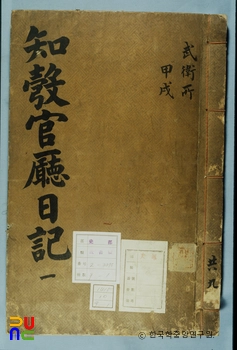 武衛所
甲戌
知彀官廳日記 一
共九
© 한국학중앙연구원